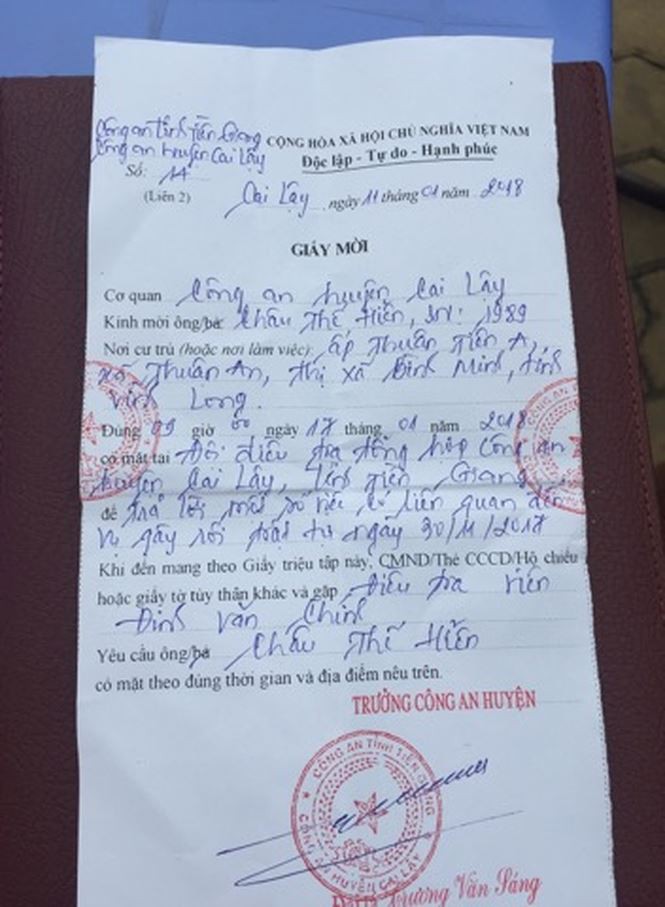 Công an tỉnh Tiền Giang CỘNG HÒA XÃ HỘI CHỦ NGHĨA VIỆT NAM
Công an huyện Cai Lậy Độc lập - Tự do - Hạnh phúc
Số: 14
(Liên 2) Cai Lậy, ngày 11 tháng 01 năm 2018
GIẤY MỜI
Cơ quan Công an huyện Cai Lậy
Kính mời ông/bà Châu Thế Hiển, sn: 1989
Nơi cư trú (hoặc nơi làm việc): ấp Thuận Tiến A,
xã Thuận An, thị xã Bình Minh, tỉnh
Vĩnh Long.
Đúng 09 giờ 00 ngày 17 tháng 01 năm 2018
có mặt tại Đội điều tra tổng hợp Công an
huyện Cai Lậy, tỉnh Tiền Giang
để trả lời một số việc có liên quan đến
vụ gây rối trật tự ngày 30/11/2017
Khi đến mang theo Giấy triệu tập này, CMND/Thẻ CCCD/Hộ chiếu
hoặc giấy tờ tùy thân khác và gặp Điều tra viên
Đinh Văn Chinh
Yêu cầu ông/bà Châu Thế Hiển
có mặt theo đúng thời gian và địa điểm nêu trên.
TRƯỞNG CÔNG AN HUYỆN
CÔNG AN TỈNH TIỀN GIANG
CÔNG AN HUYỆN CAI LẬY
Trương Văn Sáng